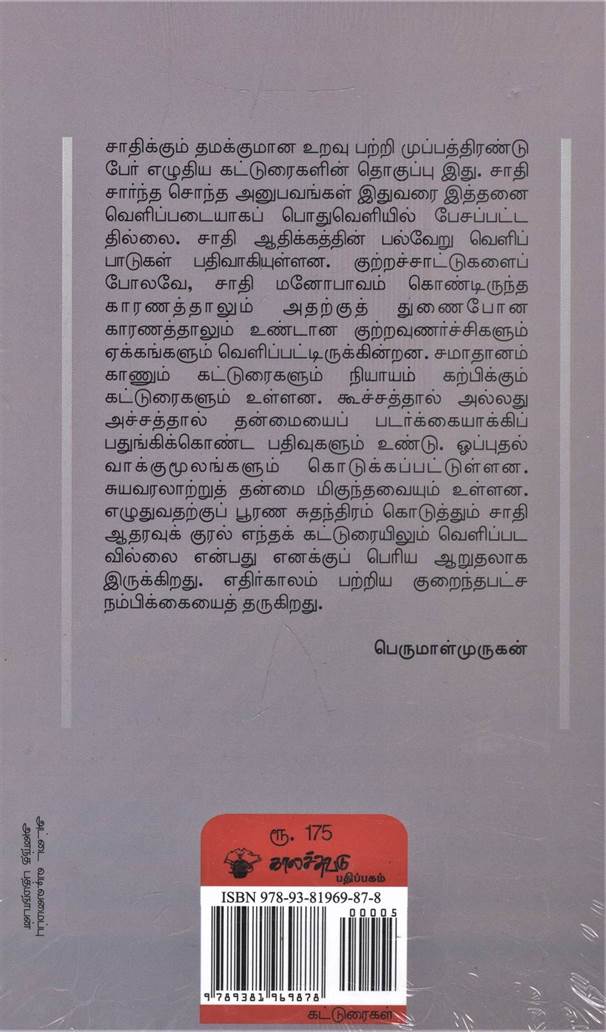 சாதிக்கும் தமக்குமான உறவு பற்றி முப்பத்திரண்டு
பேர் எழுதிய கட்டுரைகளின் தொகுப்பு இது. சாதி
சார்ந்த சொந்த அனுபவங்கள் இதுவரை இத்தனை
வெளிப்படையாகப் பொதுவெளியில் பேசப்பட்ட
தில்லை. சாதி ஆதிக்கத்தின் பல்வேறு வெளிப்
பாடுகள் பதிவாகியுள்ளன. குற்றச்சாட்டுகளைப்
போலவே, சாதி மனோபாவம் கொண்டிருந்த
காரணத்தாலும் அதற்குத் துணைபோன
காரணத்தாலும் உண்டான குற்றவுணர்ச்சிகளும்
ஏக்கங்களும் வெளிப்பட்டிருக்கின்றன. சமாதானம்
காணும் கட்டுரைகளும் நியாயம் கற்பிக்கும்
கட்டுரைகளும் உள்ளன. கூச்சத்தால் அல்லது
அச்சத்தால் தன்மையைப் படர்க்கையாக்கிப்
பதுங்கிக்கொண்ட பதிவுகளும் உண்டு. ஒப்புதல்
வாக்குமூலங்களும் கொடுக்கப்பட்டுள்ளன.
சுயவரலாற்றுத் தன்மை மிகுந்தவையும் உள்ளன.
எழுதுவதற்குப் பூரண சுதந்திரம் கொடுத்தும் சாதி
ஆதரவுக் குரல் எந்தக் கட்டுரையிலும் வெளிப்பட
வில்லை என்பது எனக்குப் பெரிய ஆறுதலாக
இருக்கிறது. எதிர்காலம் பற்றிய குறைந்தபட்ச
நம்பிக்கையைத் தருகிறது.
பெருமாள்முருகன்
அட்டை வடிவமைப்பு
அனந்த் பத்மநாபன்
ரூ. 175
காலச்சுவடு
பதிப்பகம்
ISBN 978-93-81969-87-8
00005
9 789381 969878
கட்டுரைகள்